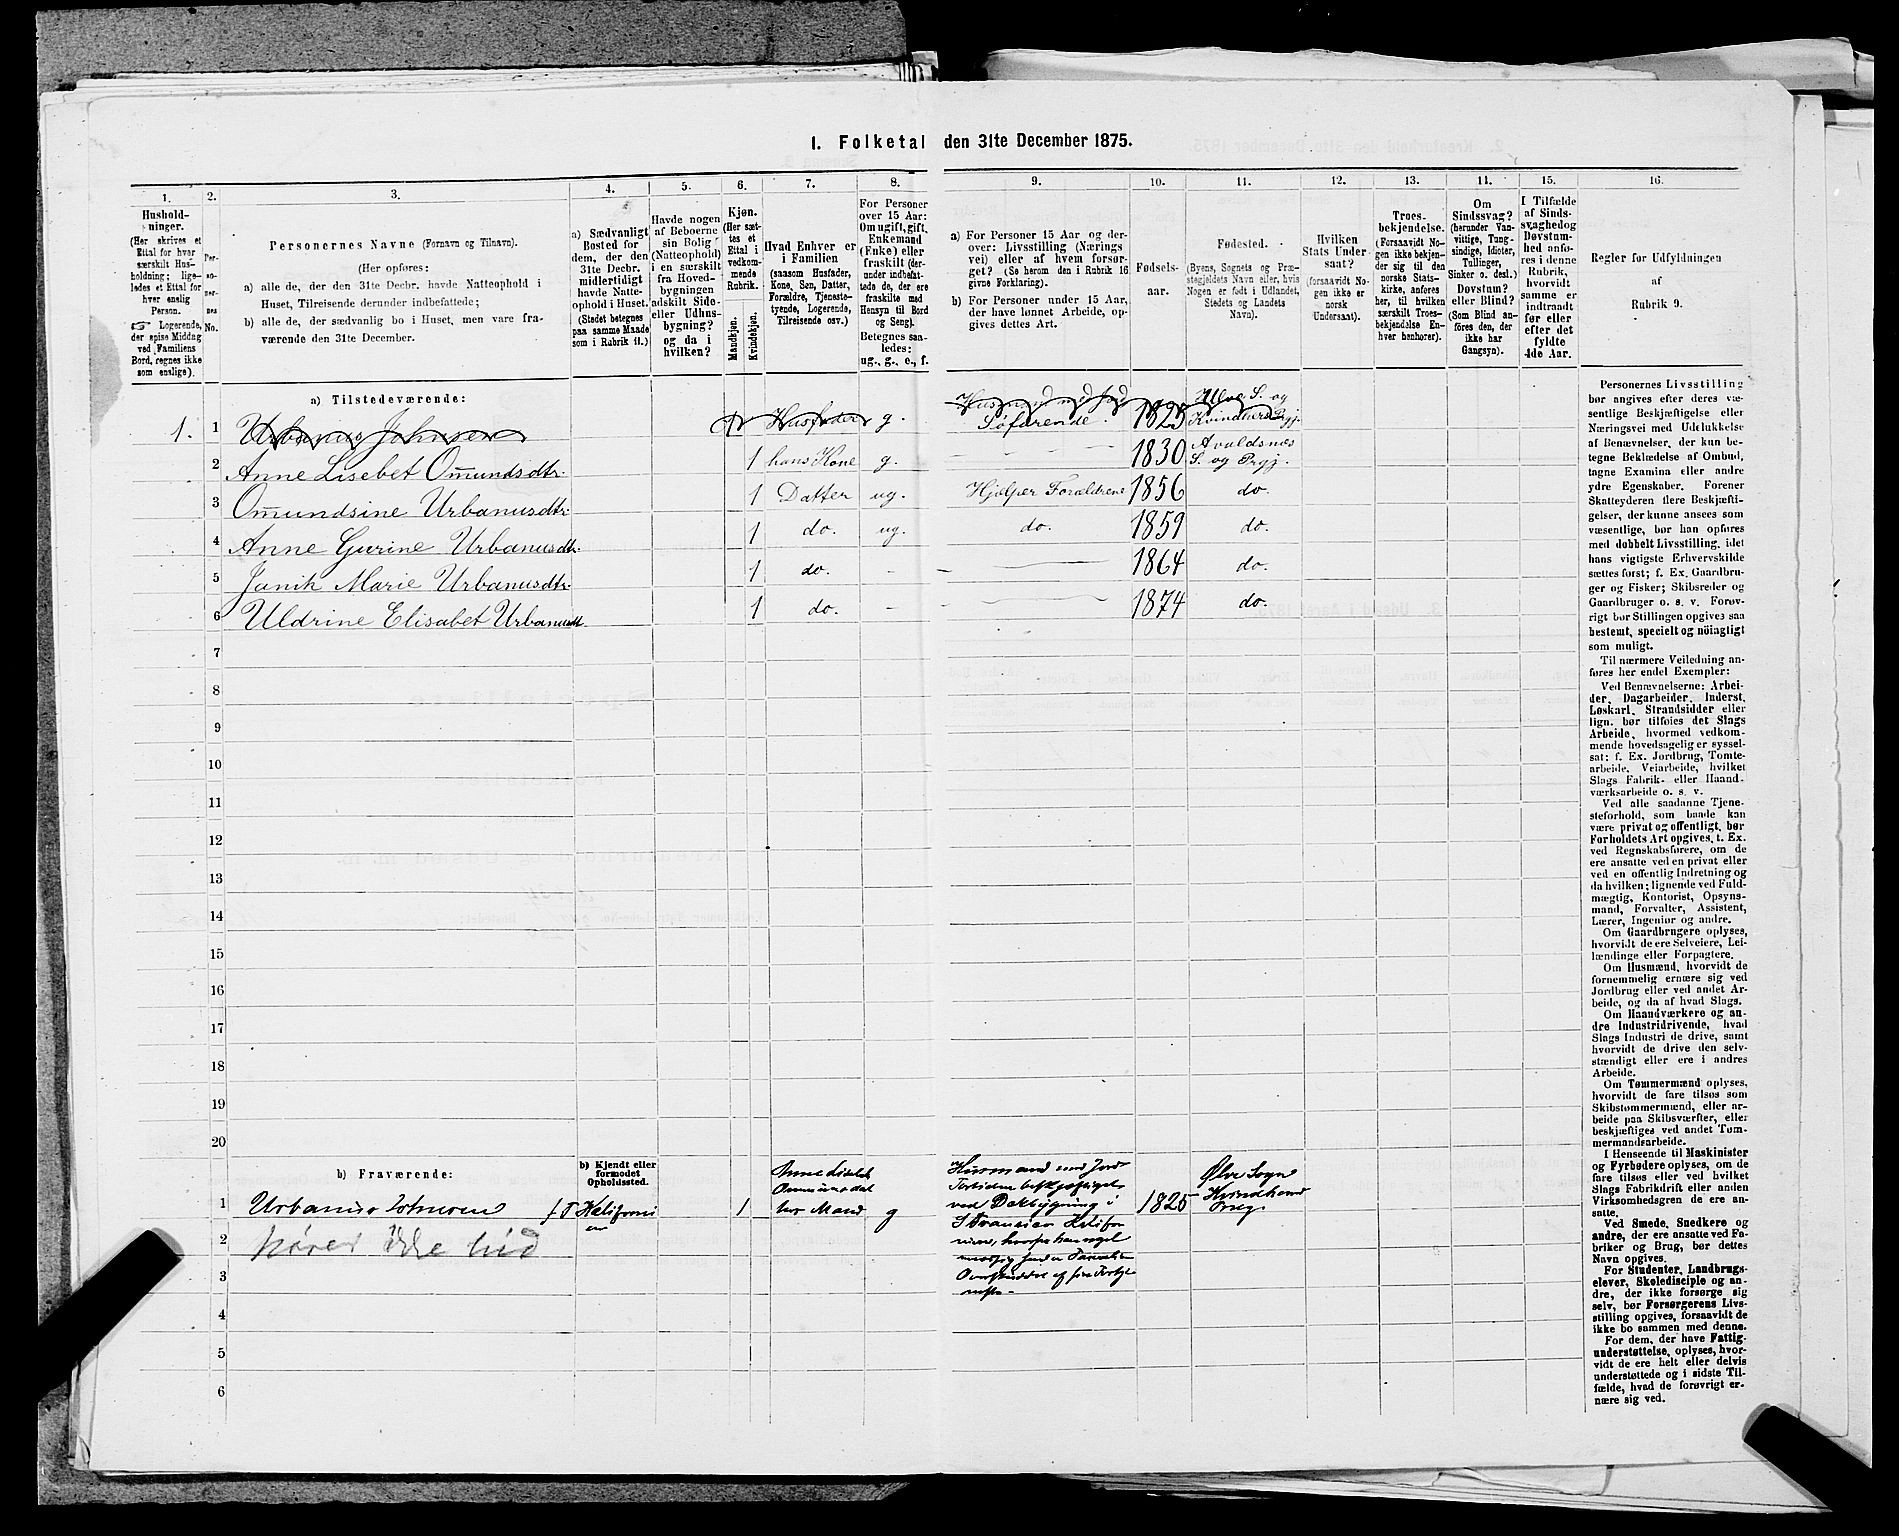 1. Folketal den 31te December 1875.
1.
2.
3.
4.
5.
6.
7.
8.
9.
10.
11.
12.
13.
14.
15.
16.
Hushold-
ninger.
(Her skrives et
Ettal for hver
særskilt Hus-
holdning; lige-
ledes et Ettal for
hver enslig
Person.
☞ Logerende,
der spise Middag
ved Familiens
Bord, regnes ikke
som enslige).
Per-
so-
ner-
nes
No.
Personernes Navne (Fornavn og Tilnavn).
(Her opføres:
a) alle de, der den 31te Decbr. havde Natteophold i
Huset, Tilreisende derunder indbefattede;
b) alle de, der sædvanlig bo i Huset, men vare fra-
værende den 31te December.
a) Sædvanligt
Bosted for
dem, der den
31te Decbr.
midlertidigt
havde Natte-
ophold i Huset.
(Stedet betegnes
paa samme Maade
som i Rubrik 11.)
Havde nogen
af Beboerne
sin Bolig
(Natteophold)
i en særskilt
fra Hoved-
bygningen
adskilt Side-
eller Udhus-
bygning?
og da i
hvilken?
Kjøn.
(Her sæt-
tes et
Ettal i
vedkom-
mende
Rubrik.
Mandkjøn.
Kvindekjøn.
Hvad Enhver er
i Familien
(saasom Husfader,
Kone, Søn, Datter,
Forældre, Tjeneste-
tyende, Logerende,
Tilreisende osv.)
For Personer
over 15 Aar:
Om ugift, gift,
Enkemand
(Enke) eller
fraskilt (der-
under indbefat-
tede de, der ere
fraskilte med
Hensyn til Bord
og Seng).
Betegnes saa-
ledes:
ug., g., e., f.
a) For Personer 15 Aar og der-
over: Livsstilling (Nærings
vei) eller af hvem forsør-
get? (Se herom den i Rubrik 16
givne Forklaring).
b) For Personer under 15 Aar,
der have lønnet Arbeide, op-
gives dettes Art.
Fødsels-
aar.
Fødested.
(Byens, Sognets og Præ-
stegjeldets Navn eller, hvis
Nogen er født i Udlandet,
Stedets og Landets
Navn).
Hvilken
Stats Under-
saat?
(forsaavidt No-
gen ikke er
norsk
Undersaat).
Troes-
bekjendelse.
(Forsaavidt No-
gen ikke bekjen-
der sig til den
norske Stats-
kirke, anføres
her, til hvilken
særskilt Troes-
bekjendelse En-
hver henhører).
Om
Sindssvag?
(herunder Van-
vittige, Tung-
sindige, Idioter,
Tullinger,
Sinker o. desl.)
Døvstum?
eller Blind?
(Som Blind an-
føres den, der
ikke har
Gangsyn).
I Tilfælde
af Sinds-
svaghed og
Døvstum-
hed anfø-
res i denne
Rubrik,
hvorvidt
samme er
indtraadt
før eller
efter det
fyldte
4de Aar.
Regler for Udfyldningen
af
Rubrik 9.
a) Tilstedeværende:
1. 1 Urbanus Johnsen 1 Husfader g. Husmand med Jord Søfarende. 1825 Ølve S. og Kvindherred Prgj.
2 Anne Lisebet Omundsdtr. 1 hans Kone g. 1830 Avaldsnes S. og Prgj.
3 Omundsine Urbanusdtr. 1 Datter ug. Hjælper Forældrene 1856 do.
4 Anne Gurine Urbanusdtr. 1 do. ug. do. 1859 do.
5 Janik Marie Urbanusdtr. 1 do. - 1864 do.
6 Uldrine Elisabet Urbanusdt. 1 do. - 1874 do.
7
8
9
10
11
12
13
14
15
16
17
18
19
20
b) Fraværende:
b) Kjendt eller
formodet
Opholdssted.
1 Urbanus Johnsen
Kalifornien
1
Anne Lisebet
Omunsdat
ters Mand
g
Husmand med Jord
Fortiden beskjæftiget
ved Dækbygning i
S Francisco Kalifor
nien, hvorfra han regel
Overskuddet af sin Fortje
neste.
1825
Ølve Sogn
Kvindherred
Præg.
2 hører ikke hid
3
4
5
6
Personernes Livsstilling
bør angives efter deres væ-
sentlige Beskjæftigelse eller
Næringsvei med Udelukkelse
af Benævnelser, der kun be-
tegne Beklædelse af Ombud,
tagne Examina eller andre
ydre Egenskaber. Forener
Skatteyderen flere Beskjæfti-
gelser, der kunne ansees som
væsentlige, bør han opføres
med dobbelt Livsstilling, idet
hans vigtigste Erhvervskilde
sættes først; f. Ex. Gaardbru-
ger og Fisker; Skibsreder og
Gaardbruger o. s. v. Forøv-
rigt bør Stillingen opgives saa
bestemt, specielt og nöiagtigt
som muligt.
Til nærmere Veiledning an-
føres her endel Exempler:
Ved Benævnelserne: Arbei-
der, Dagarbeider, Inderst,
Løskarl, Strandsidder eller
lign. bør tilføies det Slags
Arbeide, hvormed vedkom-
mende hovedsagelig er syssel-
sat; f. Ex. Jordbrug, Tomte-
arbeide, Veiarbeide, hvilket
Slags Fabrik- eller Haand-
værksarbeide o. s. v.
Ved alle saadanne Tjene-
steforhold, som baade kan
være privat og offentligt, bør
Forholdets Art opgives, t. Ex.
ved Regnskabsførere, om de
ere ansatte ved en privat eller
ved en offentlig Indretning og
da hvilken; lignende ved Fuld-
mægtig, Kontorist, Opsyns-
mand, Forvalter, Assistent,
Lærer, Ingeniør og andre.
Om Gaardbrugere oplyses,
hvorvidt de ere Selveiere, Lei-
lændinge eller Forpagtere.
Om Husmænd, hvorvidt de
fornemmelig ernære sig ved
Jordbrug eller ved andet Ar-
beide, og da af hvad Slags.
Om Haandværkere og an-
dre Industridrivende, hvad
Slags Industri de drive, samt
hvorvidt de drive den selv-
stændigt eller ere i andres
Arbeide.
Om Tømmermænd oplyses,
hvorvidt de fare tilsøs som
Skibstømmermænd, eller ar-
beide paa Skibsværfter, eller
beskjæftiges ved andet Tøm-
mermandsarbeide.
I Henseende til Maskinister
og Fyrbødere oplyses, om de
fare tilsøs eller ved hvilket
Slags Fabrikdrift eller anden
Virksomhedsgren de ere an-
satte.
Ved Smede, Snedkere og
andre, der ere ansatte ved Fa-
briker og Brug, bør dettes
Navn opgives.
For Studenter, Landbrugs-
elever, Skoledisciple og an-
dre, der ikke forsørge sig
selv, bør Forsørgerens Livs-
stilling opgives, forsaavidt de
ikke bo sammen med denne.
For dem, der have Fattig-
understøttelse, oplyses, hvor-
vidt de ere helt eller delvis
understøttede og i sidste Til-
fælde, hvad de forøvrigt er-
nære sig ved.